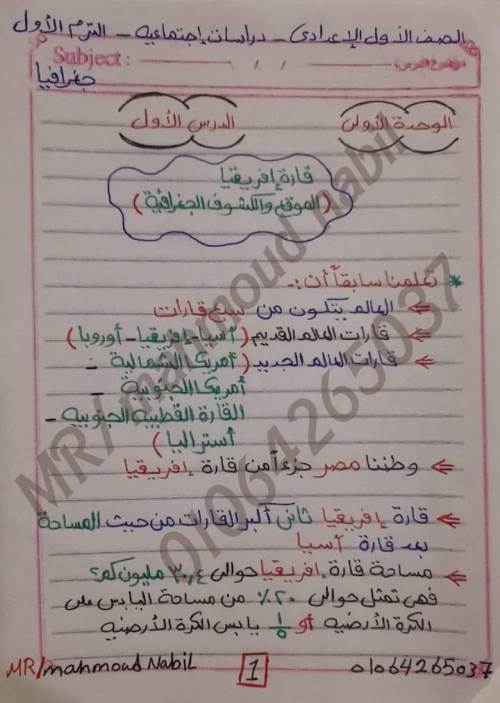 الصف الأول الإعدادى - دراسات إجتماعيه - الترم الأول
Subject:
موضوع الدرس
جغرافيا
الوحدة الأولى
الدرس الأول
قارة إفريقيا
(الموقع والكشوف الجغرافية)
* تعلمنا سابقاً أن :-
⇐ العالم يتكون من سبع قارات
⇐ قارات العالم القديم (آسيا - إفريقيا - أوروبا)
⇐ قارات العالم الجديد (أمريكا الشمالية -
أمريكا الجنوبية -
القارة القطبية الجنوبية -
أستراليا)
⇐ وطننا مصر جزءاً من قارة إفريقيا
⇐ قارة إفريقيا ثانى أكبر القارات من حيث المساحة
بعد قارة آسيا
⇐ مساحة قارة إفريقيا حوالى ٣٠,٤ مليون كم٢
فهى تمثل حوالى ٢٠٪ من مساحة اليابس على
الكرة الأرضية أو ١/٥ يابس الكرة الأرضية
MR/mahmoud Nabil
1
01064265037
MR/mahmoud nabil
01064265037